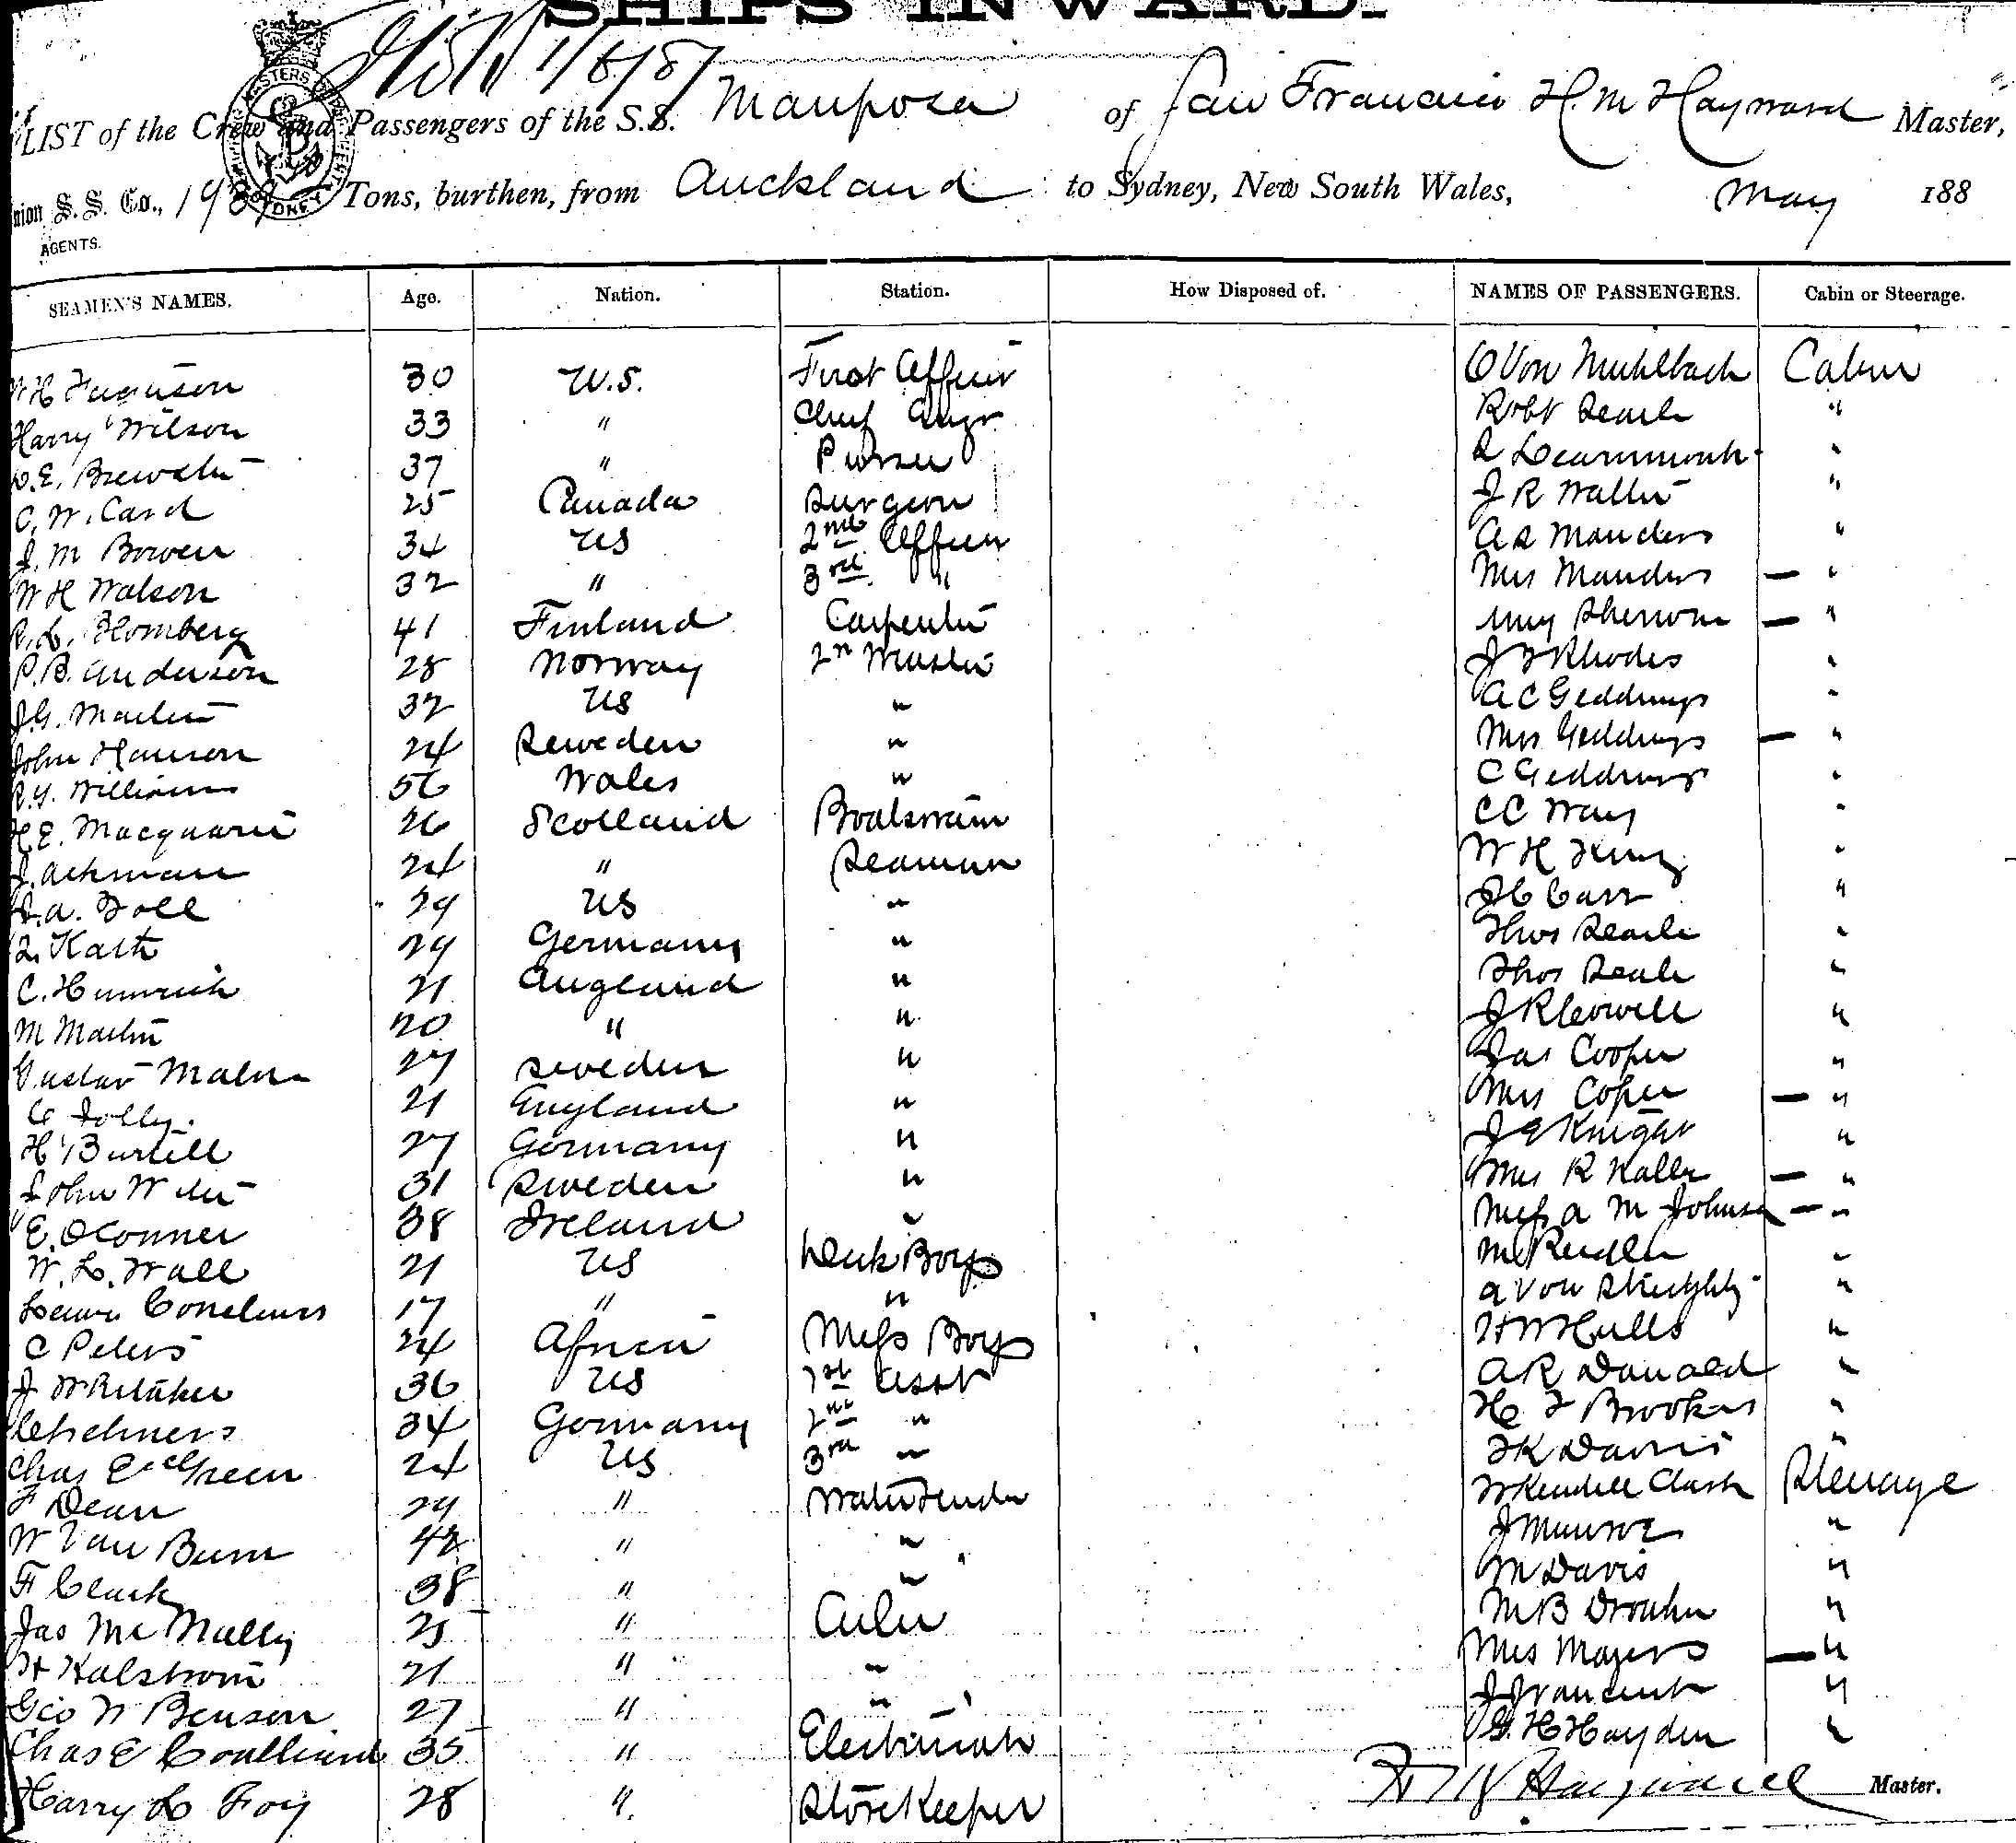 SHIPS INWARD.
1/6/87
LIST of the Crew and Passengers of the S.S. Mariposa of San Francisco H. M Hayward Master,
nion S. S. Co., Tons, burthen, from Auckland to Sydney, New South Wales, May 188
AGENTS.
SEAMEN'S NAMES. Age. Nation. Station. How Disposed of. NAMES OF PASSENGERS. Cabin or Steerage.
W H Ferguson 30 U.S. First Officer C Von Muhlbach Cabin
Harry Wilson 33 " Chief Engr Robt Searle "
E. Brewster 37 " Purser Learmonth "
C. W. Card 25 Canada Surgeon J R Walter "
J. M Bowen 34 US 2nd Officer A S Manders "
W H Watson 32 " 3rd " Mrs Manders — "
R. L. Blomberg 41 Finland Carpenter Sherwin — "
P. B. Anderson 28 Norway Master J Rhodes "
J. G. Martin 32 US " A C Geddings "
John Hanson 24 Sweden " Mrs Geddings — "
R. Y. Williams 56 Wales " C Geddings "
H E. Macquarie 26 Scotland Boatswain C C Way "
J. Ackman 24 " Seaman W H King "
J. A. Toll 29 US " J C Carr "
Kath 29 Germany " Thos Searle "
C. 21 England " Thos Seale "
M Martin 20 " " J R Cowell "
Gustav Malm 27 Sweden " Jas Cooper "
C Jolly. 21 England " Mrs Coper — "
H Burtell 27 Germany " J Knight "
John 31 Sweden " Mrs R — "
E. OConner 38 Ireland " Miss A M Johnson — "
W. L. Wall 21 US Deck Boys "
Cornelius 17 " " A Von "
C Peters 24 Africa Mess Boys H W Hulls "
J Whitaker 36 US 1st Asst A R Donald "
34 Germany 2nd " H F Brookes "
Chas E Green 24 US 3rd " F K Davis "
F Dean 29 " Water Tender W Kendell Clark Steerage
W Van Buren 42 " " J Munroe "
F Clark 38 " " M Davis "
Jas Mc Nally 25 " Oiler M B "
H Halstrom 21 " " Mrs Mayers — "
Geo W Benson 27 " " J "
Chas E 35 " Electrician G. H Hayden "
Harry L Foy 28 " Store Keeper H M Hayward Master.